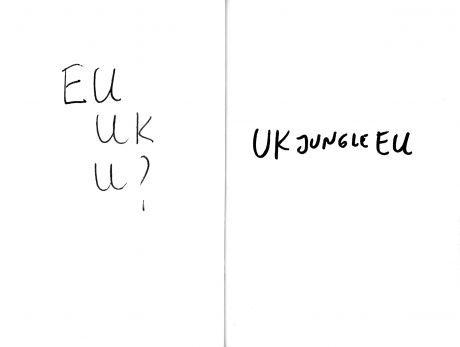 EU
UK
U?
UK JUNGLE EU